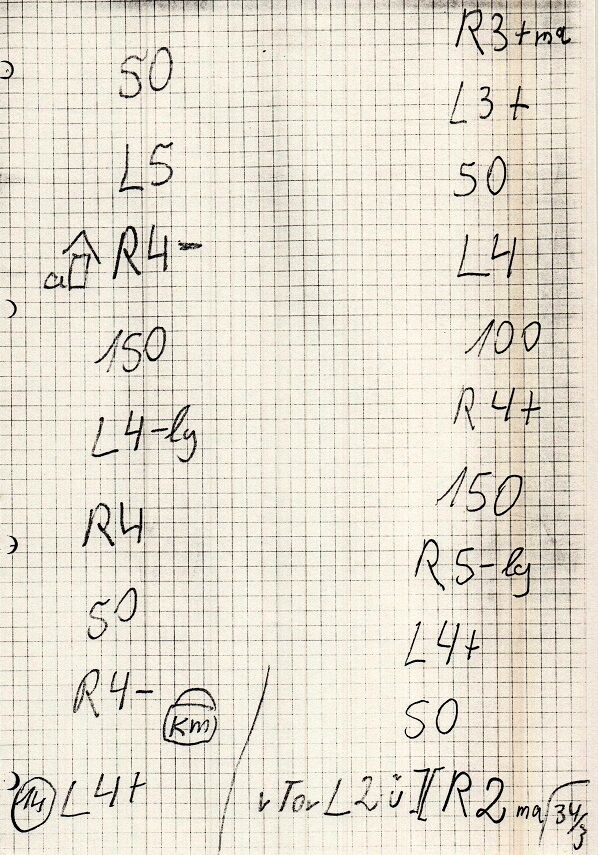 50
L5
a R4-
150
L4-lg
R4
50
R4- Km
14 L4+
R3+ma
L3+
50
L4
100
R4+
150
R5-lg
L4+
50
v Tor L2 ü R2 ma